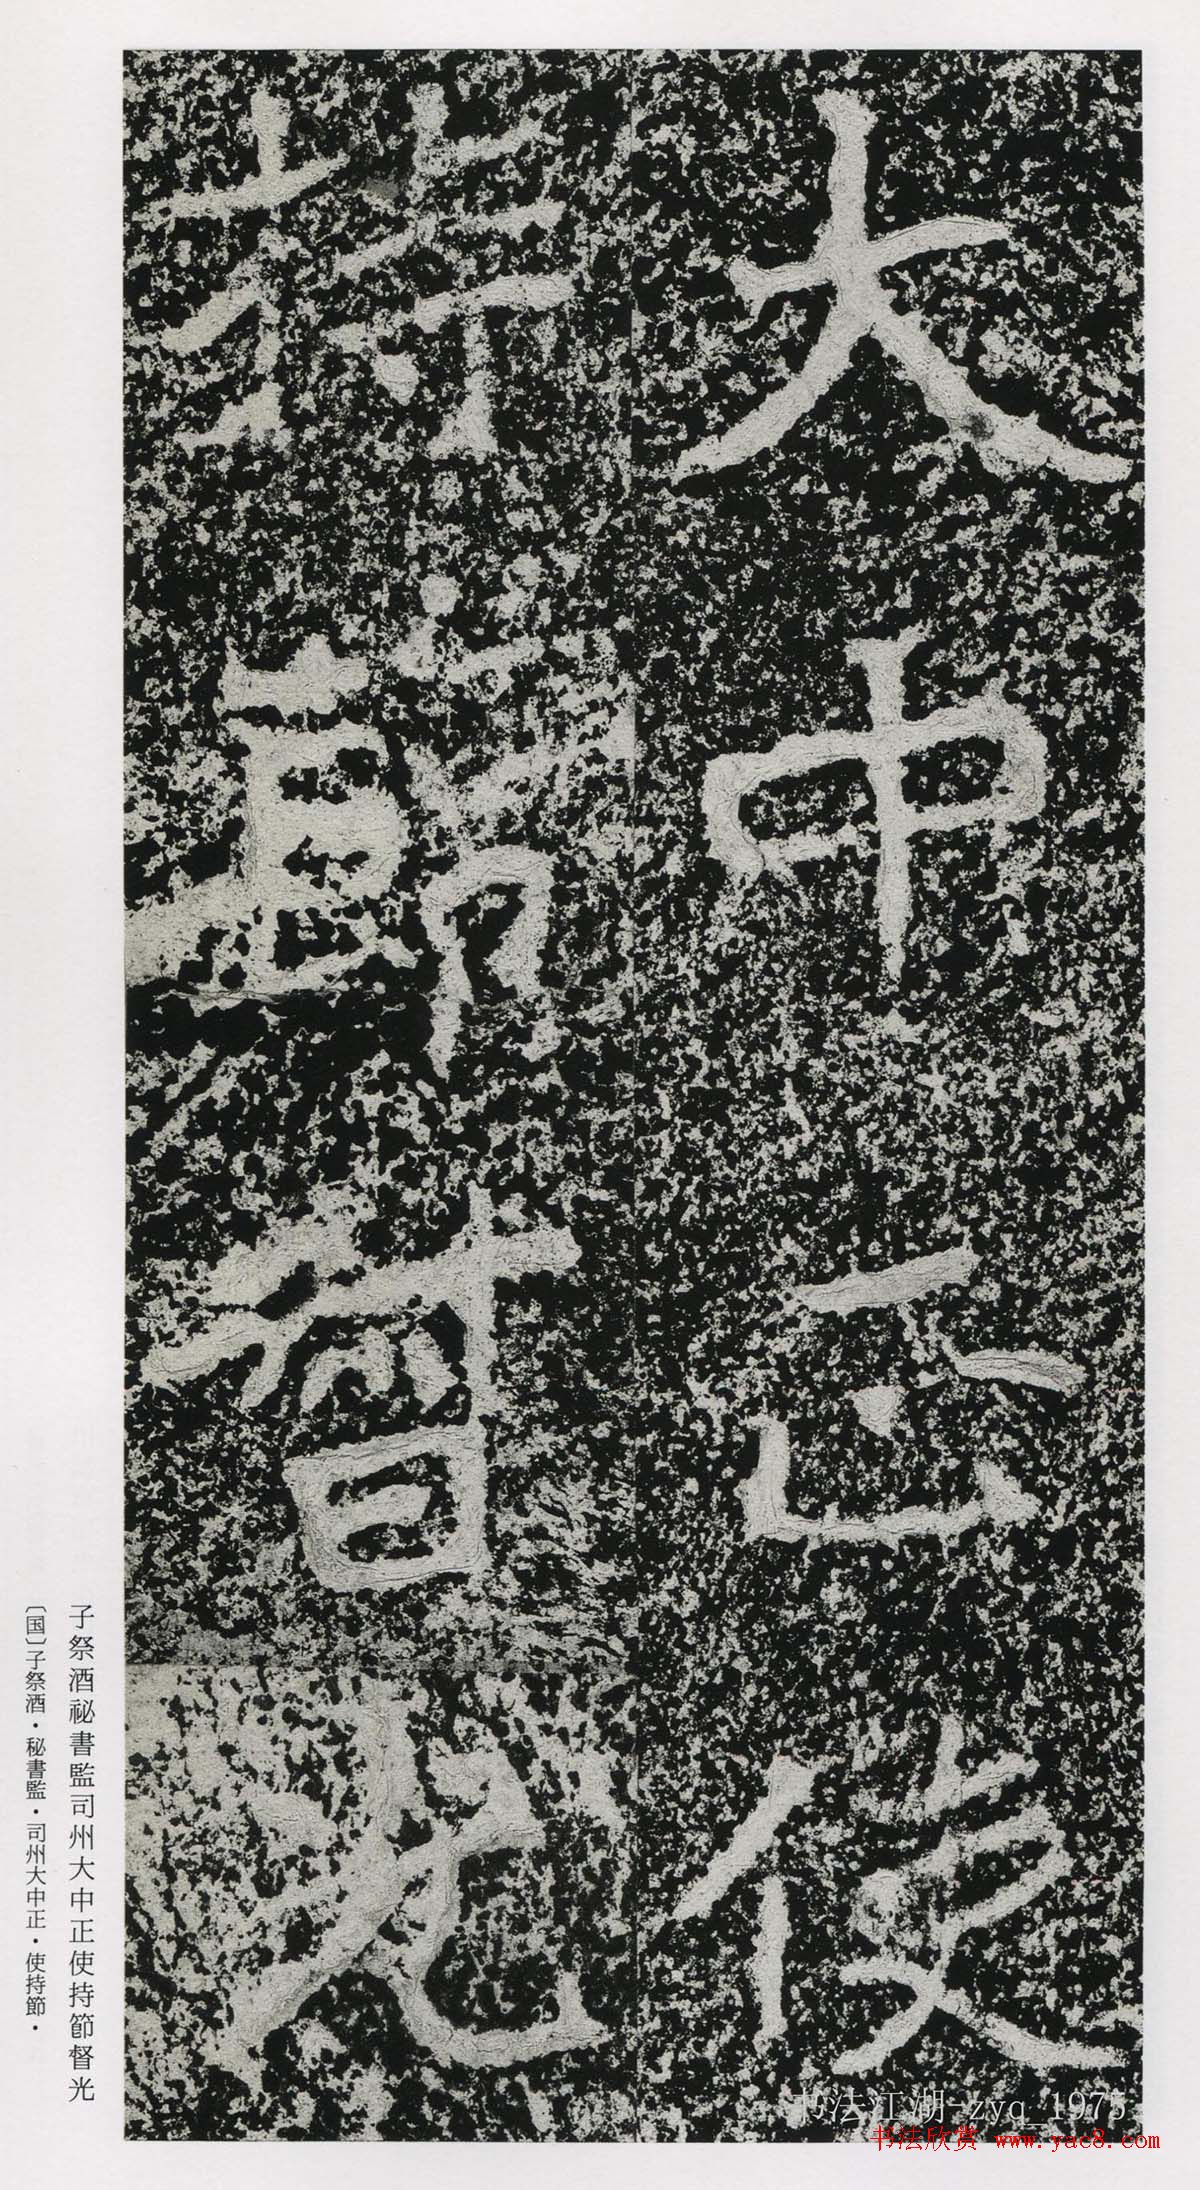 大中正使
持節督光
子祭酒祕書監司州大中正使持節督光
〔国〕子祭酒・秘書監・司州大中正・使持節・
书法江湖-zyq_1975
书法欣赏 www.yac8.com